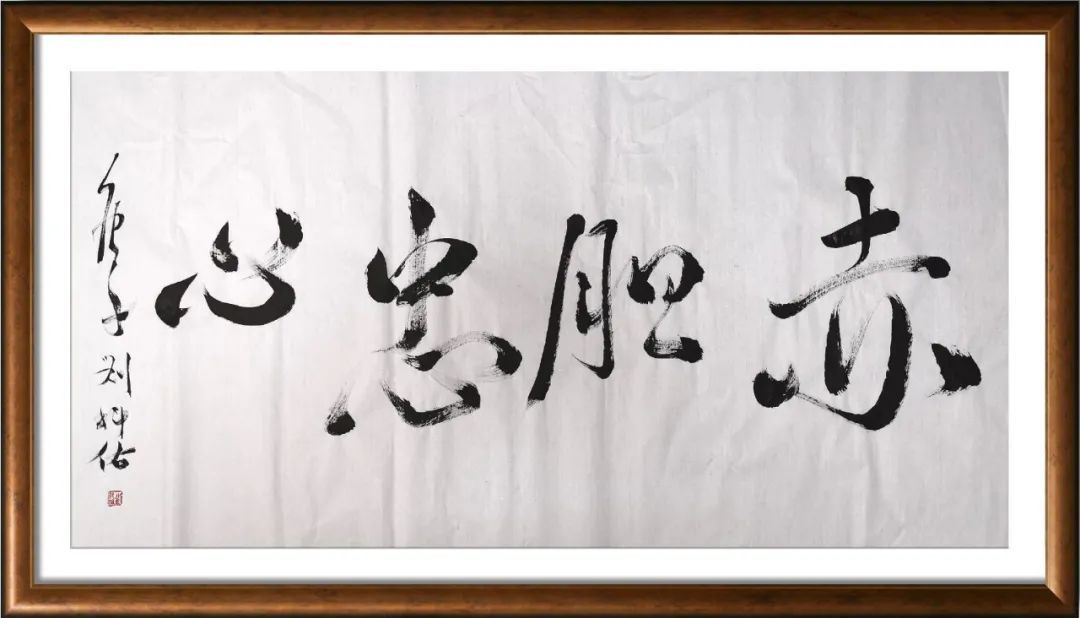 赤胆忠心
庚子刘科佑